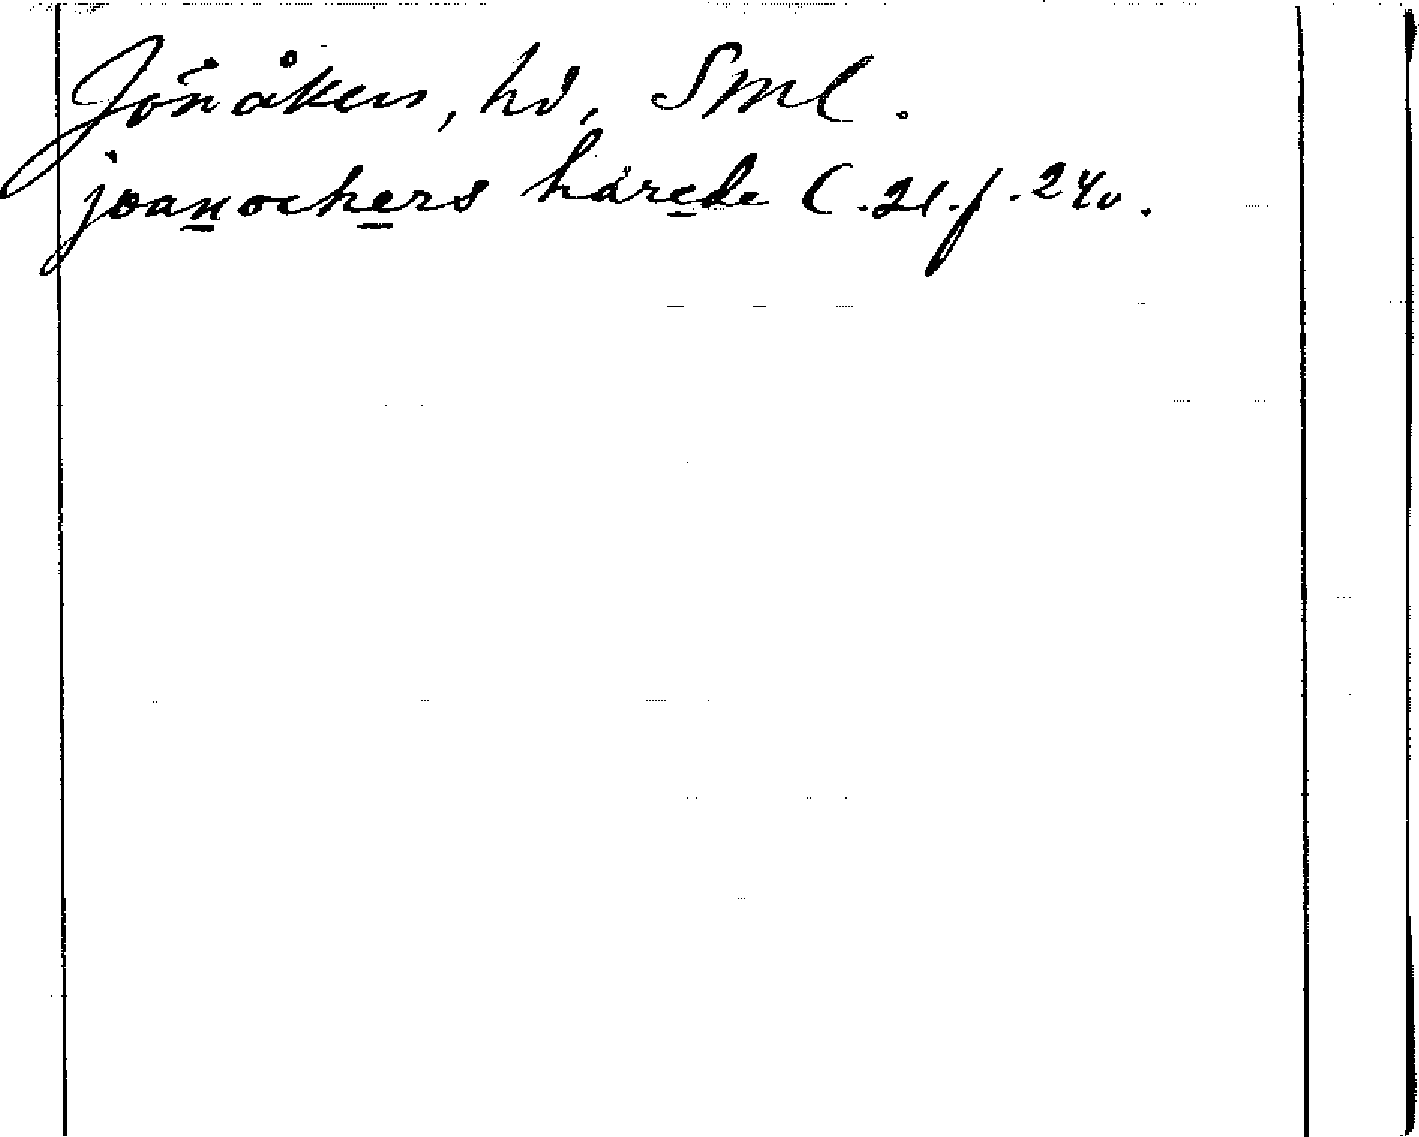 Jönåkers, hd, Sml.
joanochers härede C.21.f.240.